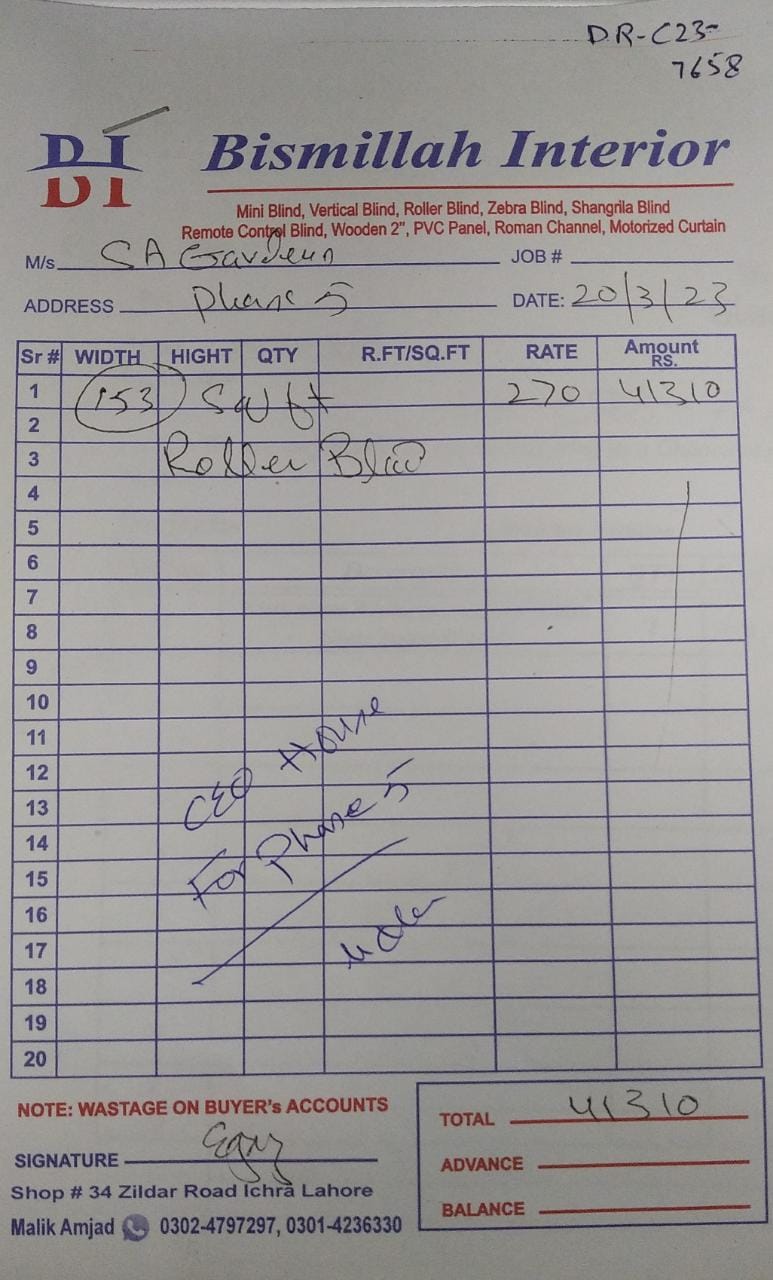 DR-C23-
7658
BI Bismillah Interior
Mini Blind, Vertical Blind, Roller Blind, Zebra Blind, Shangrila Blind
Remote Control Blind, Wooden 2", PVC Panel, Roman Channel, Motorized Curtain
M/s. SA Gardenn JOB #
ADDRESS Phase 5 DATE: 20/3/23
Sr # WIDTH HIGHT QTY R.FT/SQ.FT RATE Amount RS.
1 153 Sq ft 270 41310
2
3 Roller Blind
4
5
6
7
8
9
10
11
12
13
14
15
16
17
18
19
20
CEO House
For Phase 5
NOTE: WASTAGE ON BUYER's ACCOUNTS
TOTAL 41310
SIGNATURE
ADVANCE
Shop # 34 Zildar Road Ichra Lahore
BALANCE
Malik Amjad 0302-4797297, 0301-4236330